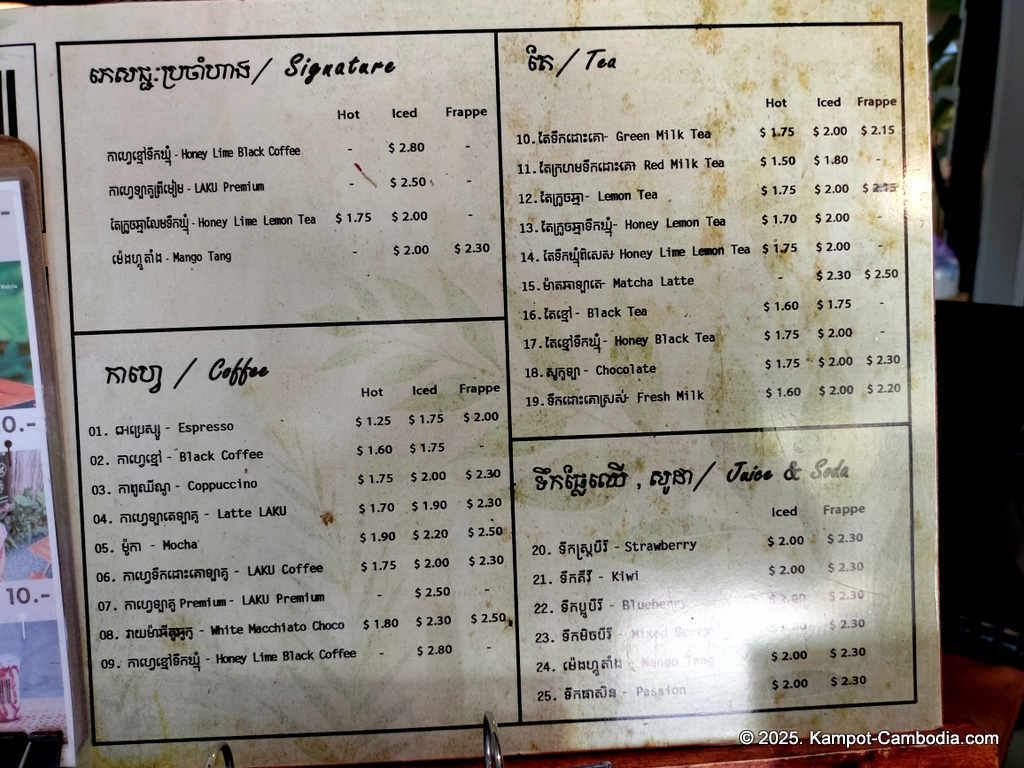 ភេសជ្ជៈប្រចាំហាង / Signature
Hot Iced Frappe
កាហ្វេខ្មៅទឹកឃ្មុំ - Honey Lime Black Coffee - $ 2.80 -
កាហ្វេឡាគូព្រីមៀម - LAKU Premium - $ 2.50 -
តែក្រូចឆ្មាលែមទឹកឃ្មុំ - Honey Lime Lemon Tea $ 1.75 $ 2.00 -
ម៉េងហ្គូតាំង - Mango Tang - $ 2.00 $ 2.30
កាហ្វេ / Coffee
Hot Iced Frappe
01. អេប្រេស្សូ - Espresso $ 1.25 $ 1.75 $ 2.00
02. កាហ្វេខ្មៅ - Black Coffee $ 1.60 $ 1.75 -
03. កាពូឈីណូ - Coppuccino $ 1.75 $ 2.00 $ 2.30
04. កាហ្វេឡាតេឡាគូ - Latte LAKU $ 1.70 $ 1.90 $ 2.30
05. ម៉ូកា - Mocha $ 1.90 $ 2.20 $ 2.50
06. កាហ្វេទឹកដោះគោឡាគូ - LAKU Coffee $ 1.75 $ 2.00 $ 2.30
07. កាហ្វេឡាគូ Premium - LAKU Premium - $ 2.50 -
08. - White Macchiato Choco $ 1.80 $ 2.30 $ 2.50
09. កាហ្វេខ្មៅទឹកឃ្មុំ - Honey Lime Black Coffee - $ 2.80 -
តែ / Tea
Hot Iced Frappe
10. តែទឹកដោះគោ - Green Milk Tea $ 1.75 $ 2.00 $ 2.15
11. តែក្រហមទឹកដោះគោ Red Milk Tea $ 1.50 $ 1.80 -
12. តែក្រូចឆ្មា - Lemon Tea $ 1.75 $ 2.00
13. តែក្រូចឆ្មាទឹកឃ្មុំ - Honey Lemon Tea $ 1.70 $ 2.00 -
14. តែទឹកឃ្មុំពិសេស Honey Lime Lemon Tea $ 1.75 $ 2.00 -
15. ម៉ាតឆាឡាតេ - Matcha Latte - $ 2.30 $ 2.50
16. តែខ្មៅ - Black Tea $ 1.60 $ 1.75 -
17. តែខ្មៅទឹកឃ្មុំ - Honey Black Tea $ 1.75 $ 2.00 -
18. សូកូឡា - Chocolate $ 1.75 $ 2.00 $ 2.30
19. ទឹកដោះគោស្រស់ - Fresh Milk $ 1.60 $ 2.00 $ 2.20
ទឹកផ្លែឈើ , សូដា / Juice & Soda
Iced Frappe
20. ទឹកស្ត្របឺរី - Strawberry $ 2.00 $ 2.30
21. ទឹកគីវី - Kiwi $ 2.00 $ 2.30
22. ទឹកប្លូបឺរី - Blueberry $ 2.00 $ 2.30
23. ទឹកមិចបឺរី - Mixed Berry $ 2.30
24. ម៉េងហ្គូតាំង - Mango Tang $ 2.00 $ 2.30
25. ទឹកផាសិន - Passion $ 2.00 $ 2.30
0.-
10.-
© 2025. Kampot-Cambodia.com